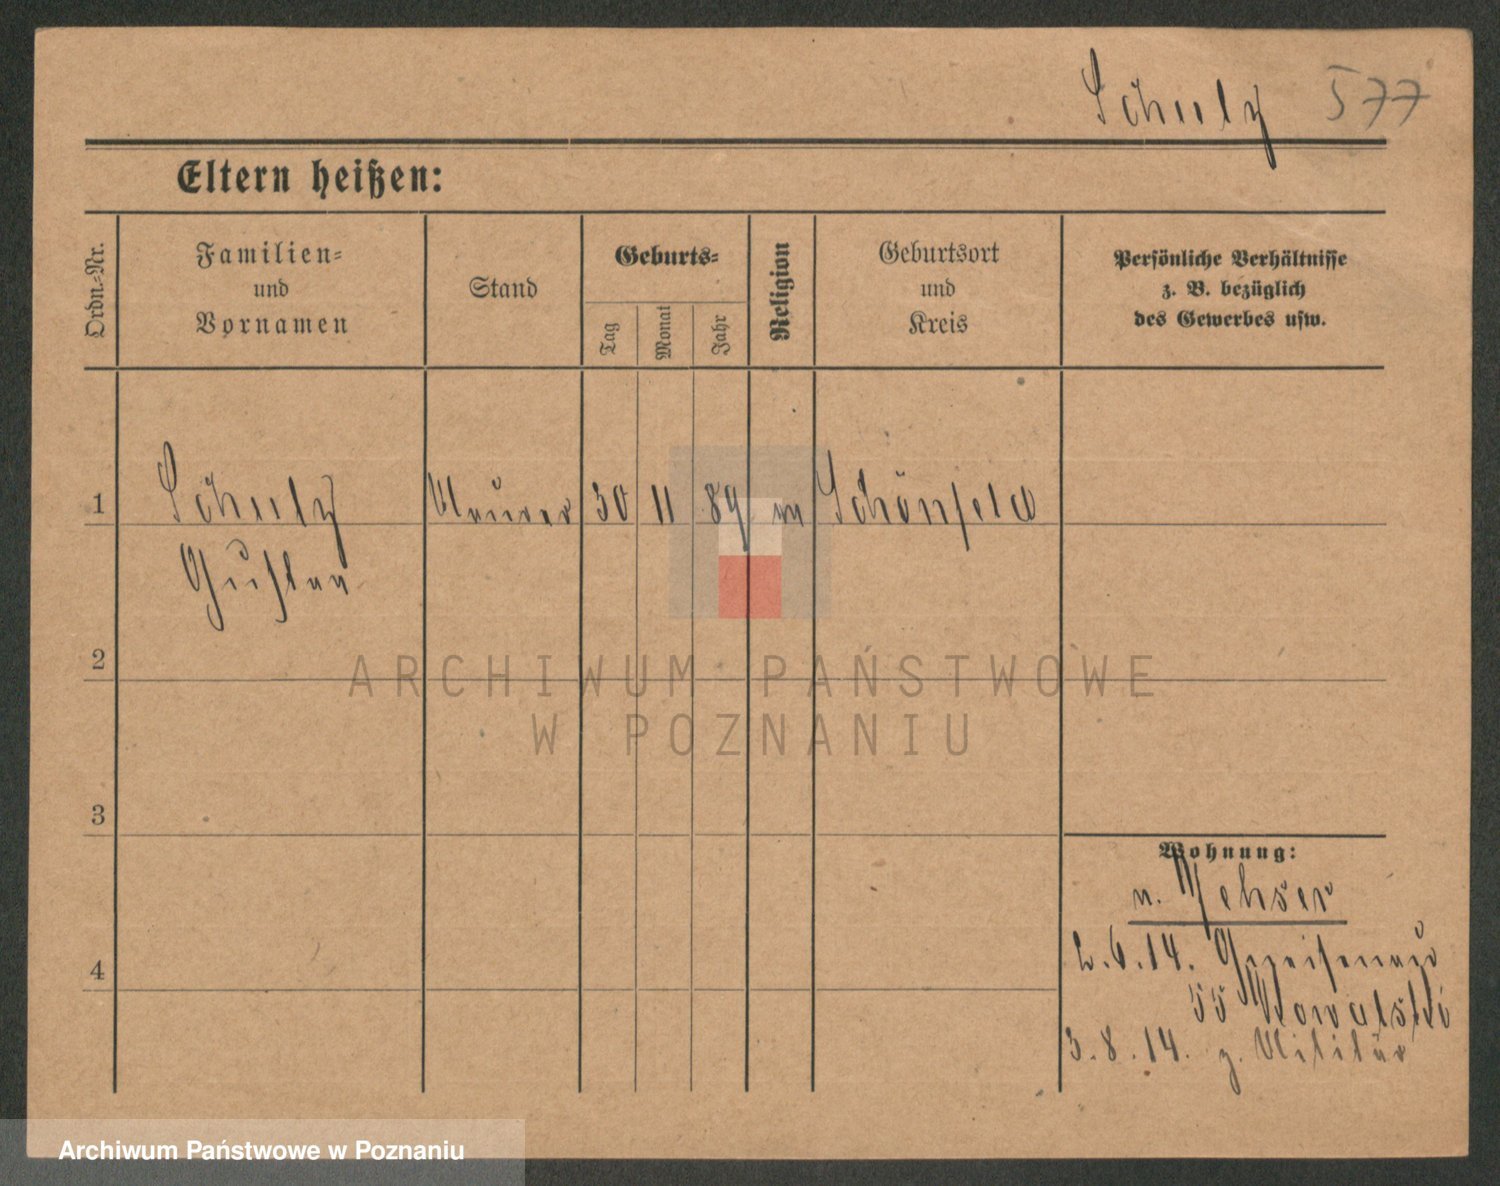 Schulz 577
Eltern heißen:
Ordn.-Nr.
Familien-
und
Vornamen
Stand
Geburts-
Tag
Monat
Jahr
Religion
Geburtsort
und
Kreis
Persönliche Verhältnisse
z. B. bezüglich
des Gewerbes usw.
1 Schulz Maurer 30 11 89 Schönfeld
Gustav
2
3
4
Wohnung:
n.
2.6.14. Gneisenau
55 Kowalski
3.8.14. z. Militär
ARCHIWUM PAŃSTWOWE
W POZNANIU
Archiwum Państwowe w Poznaniu